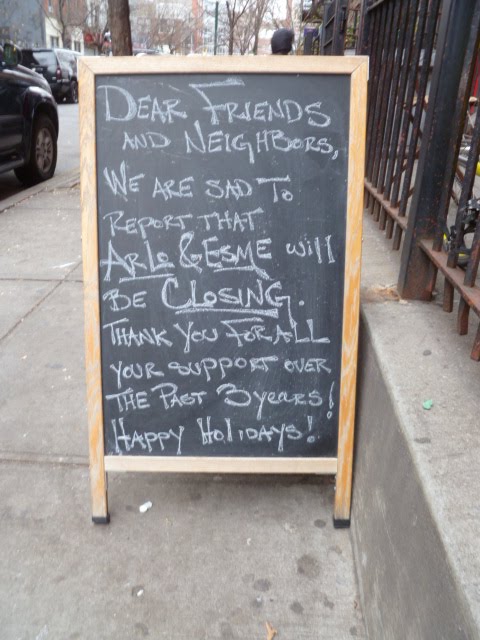 DEAR FRIENDS
AND NEIGHBORS,
WE ARE SAD TO
REPORT THAT
ARLO & ESME will
BE CLOSING.
THANK YOU FOR ALL
YOUR SUPPORT OVER
THE PAST 3 years!
HAPPY HOLIDAYS!